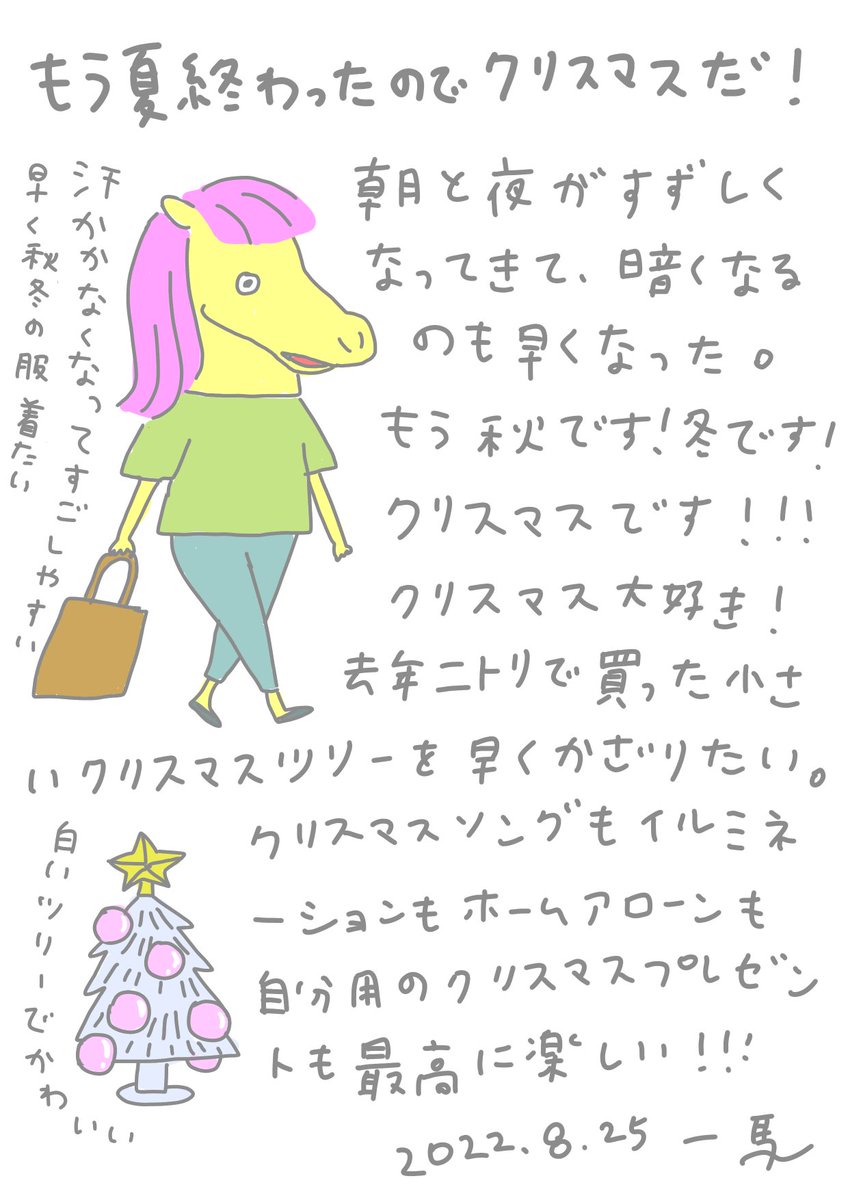 もう夏終わったのでクリスマスだ!
汗かかなくなってすごしやすい
早く秋冬の服着たい
朝と夜がすずしく
なってきて、暗くなる
のも早くなった。
もう秋です!冬です!
クリスマスです!!!
クリスマス大好き!
去年ニトリで買った小さ
いクリスマスツリーを早くかざりたい。
白いツリーでかわいい
クリスマスソングもイルミネ
ーションもホームアローンも
自分用のクリスマスプレゼン
トも最高に楽しい!!!
2022.8.25 一馬